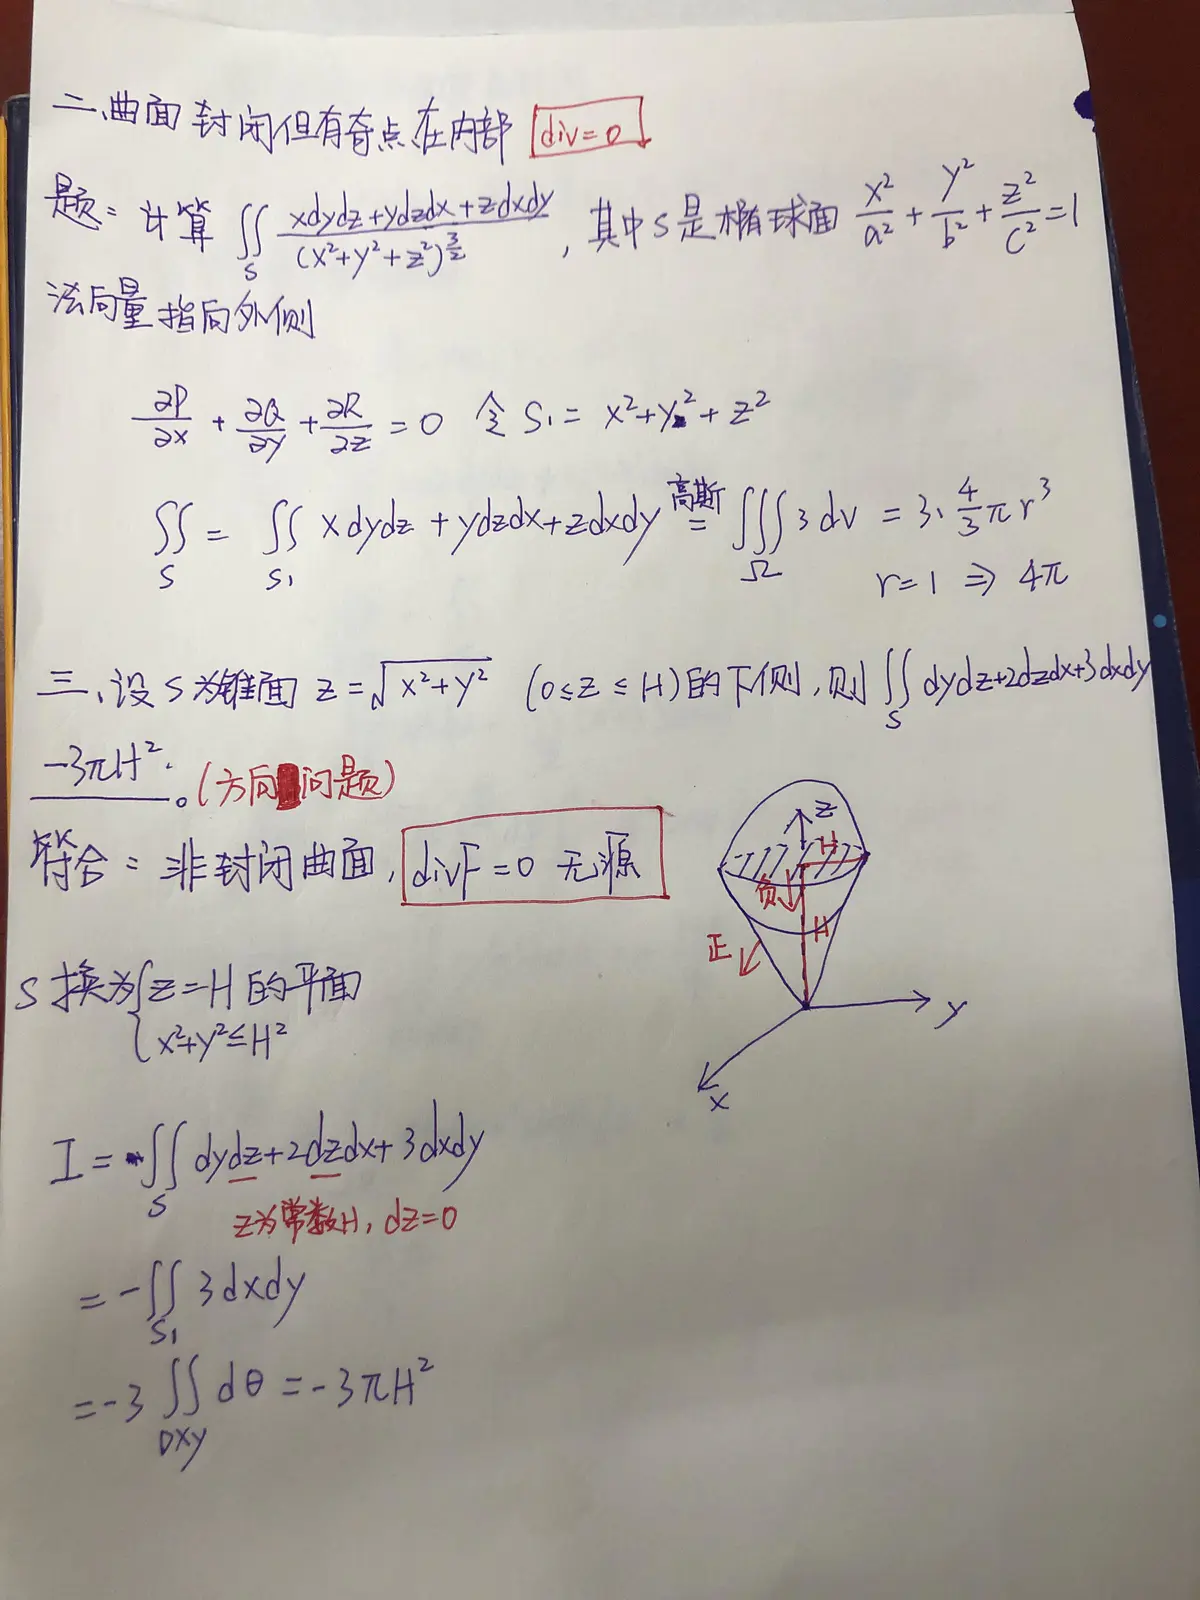 二、曲面封闭但有奇点在内部 div=0
题: 计算 ∬_S (xdydz+ydzdx+zdxdy)/(x²+y²+z²)^(3/2), 其中S是椭球面 x²/a²+y²/b²+z²/c²=1
法向量指向外侧
∂P/∂x + ∂Q/∂y + ∂R/∂z = 0 令 S₁ = x²+y²+z²
∬_S = ∬_S₁ xdydz + ydzdx + zdxdy 高斯= ∭_Ω 3dv = 3·4/3πr³
r=1 ⇒ 4π
三、设S为锥面 z=√(x²+y²) (0≤z≤H)的下侧,则∬_S dydz+2dzdx+3dxdy
-3πH². 。(方向问题)
符合: 非封闭曲面, divF=0 无源
z
H
负
正
H
y
x
S换为{z=H的平面
x²+y²≤H²
I = -∬_S dydz+2dzdx+3dxdy
z为常数H, dz=0
= -∬_S₁ 3dxdy
= -3∬_Dxy dθ = -3πH²